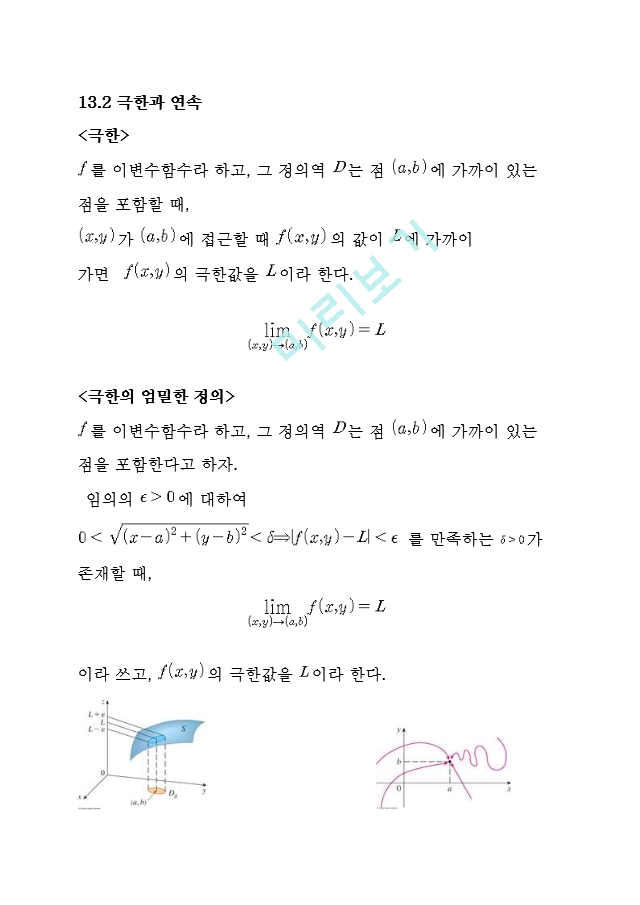 13.2 극한과 연속
<극한>
f를 이변수함수라 하고, 그 정의역 D는 점 (a,b)에 가까이 있는
점을 포함할 때,
(x,y)가 (a,b)에 접근할 때 f(x,y)의 값이 L에 가까이
가면 f(x,y)의 극한값을 L이라 한다.
lim f(x,y) = L
(x,y)→(a,b)
<극한의 엄밀한 정의>
f를 이변수함수라 하고, 그 정의역 D는 점 (a,b)에 가까이 있는
점을 포함한다고 하자.
임의의 ϵ > 0에 대하여
0 < √((x−a)²+(y−b)²) < δ⟹|f(x,y)−L| < ϵ 를 만족하는 δ > 0가
존재할 때,
lim f(x,y) = L
(x,y)→(a,b)
이라 쓰고, f(x,y)의 극한값을 L이라 한다.
z
L + ε
L
L − ε
S
0
x
y
(a, b)
D_δ
y
b
0
a
x
미리보기